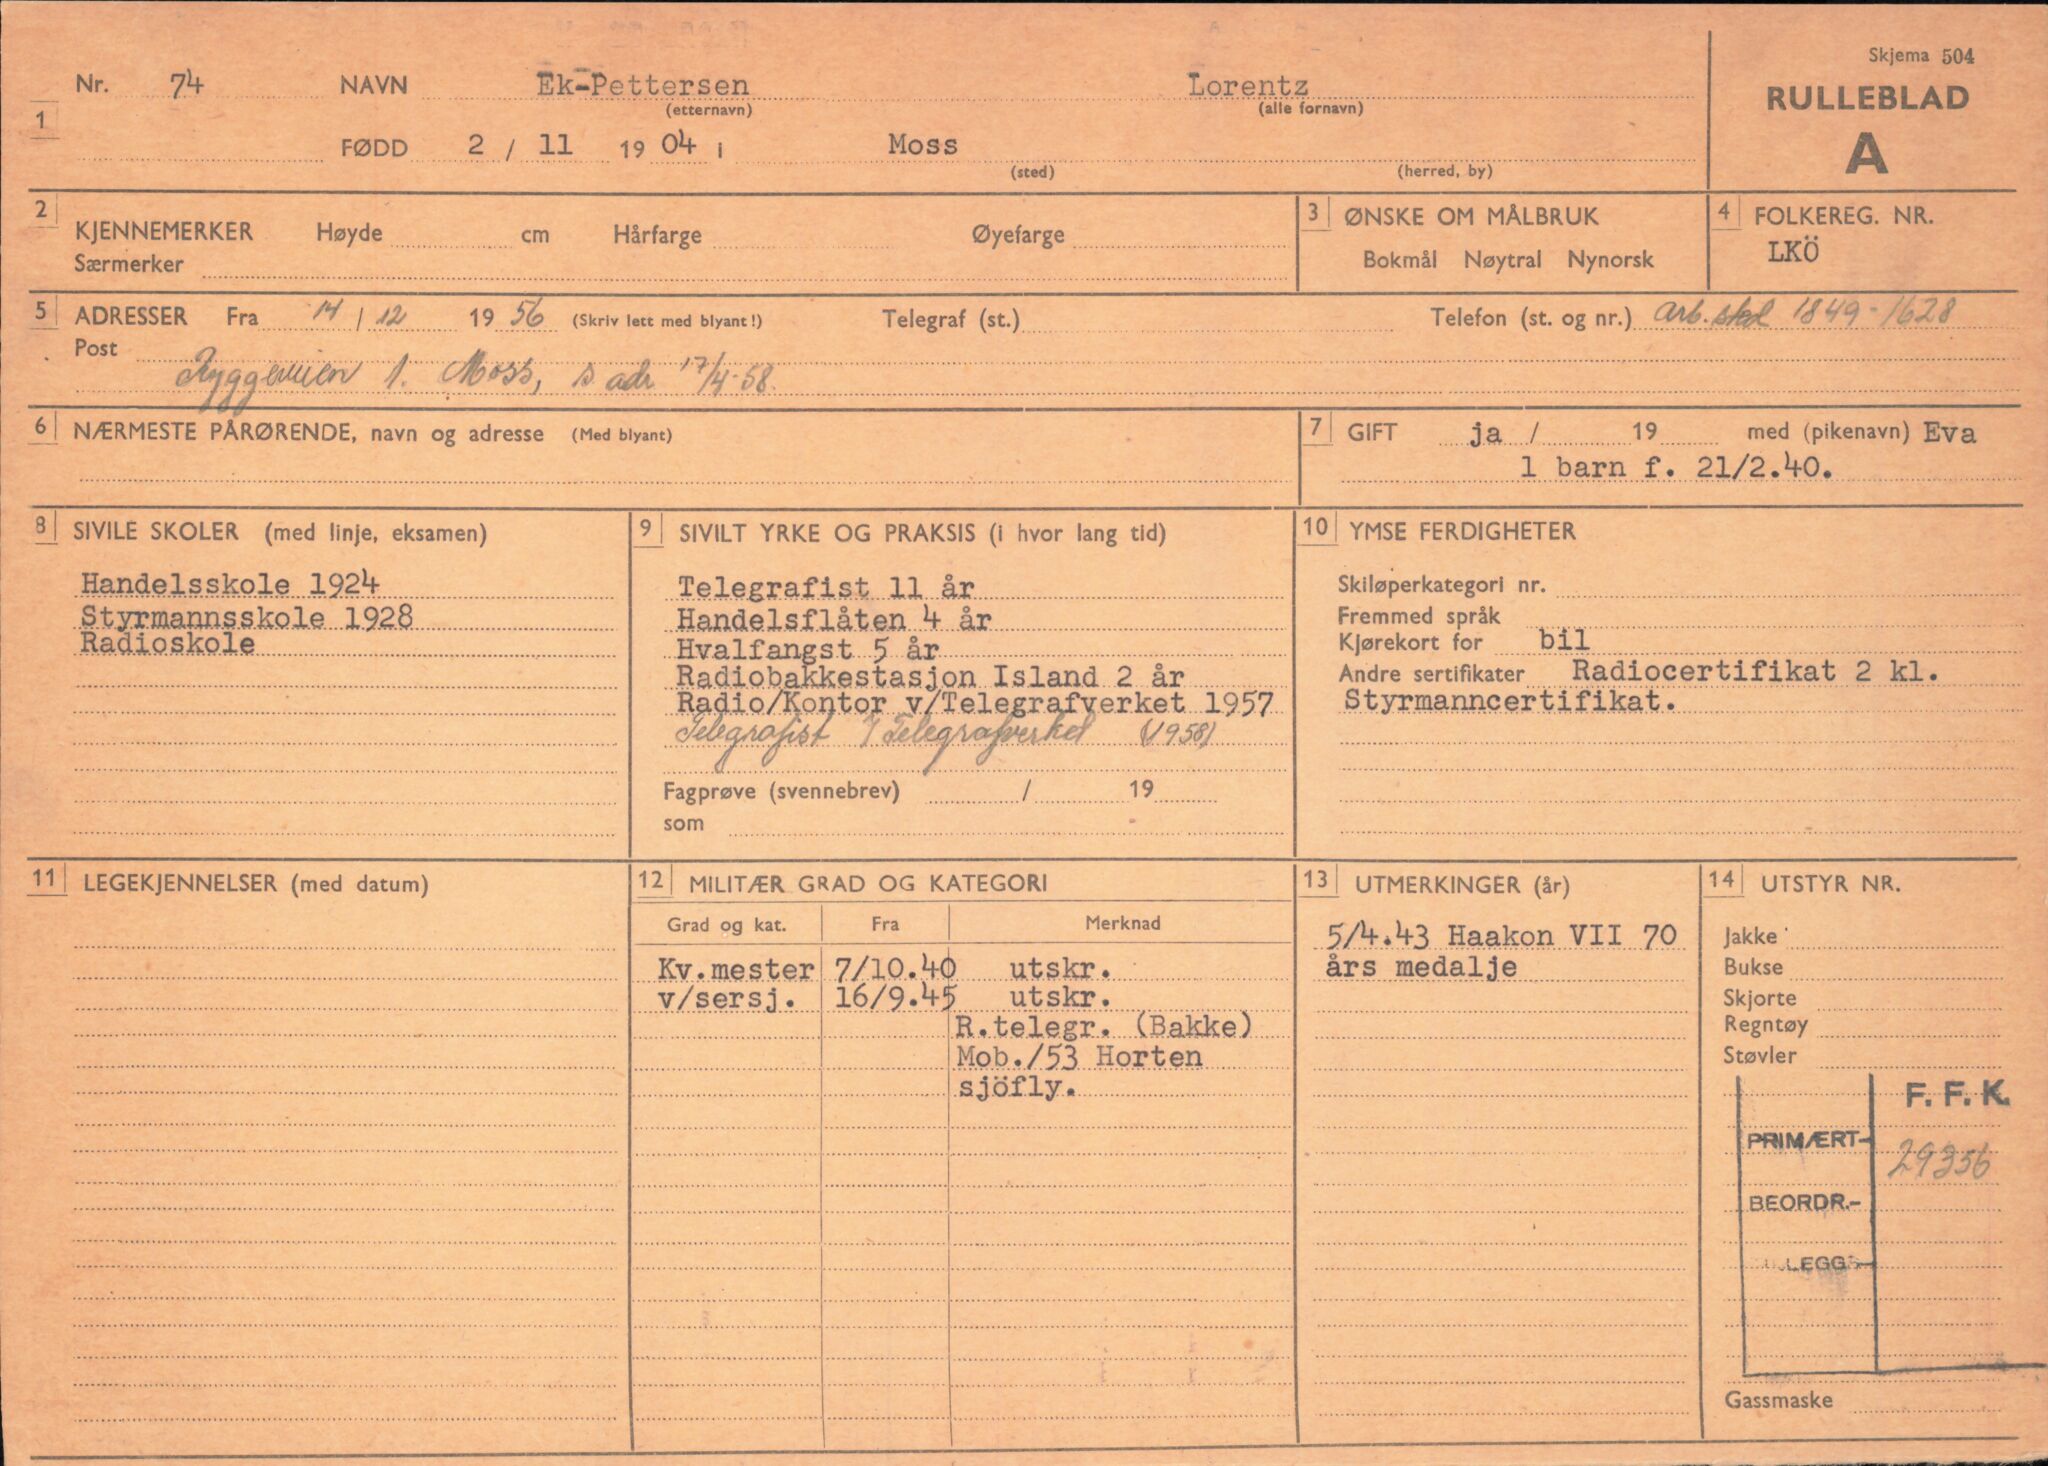 Skjema 504
RULLEBLAD
A
1 Nr. 74 NAVN Ek-Pettersen Lorentz
(etternavn) (alle fornavn)
FØDD 2 / 11 19 04 i Moss
(sted) (herred, by)
2 KJENNEMERKER Høyde cm Hårfarge Øyefarge
Særmerker
3 ØNSKE OM MÅLBRUK
Bokmål Nøytral Nynorsk
4 FOLKEREG. NR.
LKÖ
5 ADRESSER Fra 14 / 12 19 56 (Skriv lett med blyant!) Telegraf (st.) Telefon (st. og nr.) arb.sted 1849-1628
Post
Ryggeveien 1. Moss, s adr 17/4-58.
6 NÆRMESTE PÅRØRENDE, navn og adresse (Med blyant)
7 GIFT ja / 19 med (pikenavn) Eva
1 barn f. 21/2.40.
8 SIVILE SKOLER (med linje, eksamen)
Handelsskole 1924
Styrmannsskole 1928
Radioskole
9 SIVILT YRKE OG PRAKSIS (i hvor lang tid)
Telegrafist 11 år
Handelsflåten 4 år
Hvalfangst 5 år
Radiobakkestasjon Island 2 år
Radio/Kontor v/Telegrafverket 1957
Telegrafist v/Telegrafverket (1958)
Fagprøve (svennebrev) / 19
som
10 YMSE FERDIGHETER
Skiløperkategori nr.
Fremmed språk
Kjørekort for bil
Andre sertifikater Radiocertifikat 2 kl.
Styrmanncertifikat.
11 LEGEKJENNELSER (med datum)
12 MILITÆR GRAD OG KATEGORI
Grad og kat. Fra Merknad
Kv.mester 7/10.40 utskr.
v/sersj. 16/9.45 utskr.
R.telegr. (Bakke)
Mob./53 Horten
sjöfly.
13 UTMERKINGER (år)
5/4.43 Haakon VII 70
års medalje
14 UTSTYR NR.
Jakke
Bukse
Skjorte
Regntøy
Støvler
F. F. K.
PRIMÆRT- 29356
BEORDR.-
LEGGS-
Gassmaske